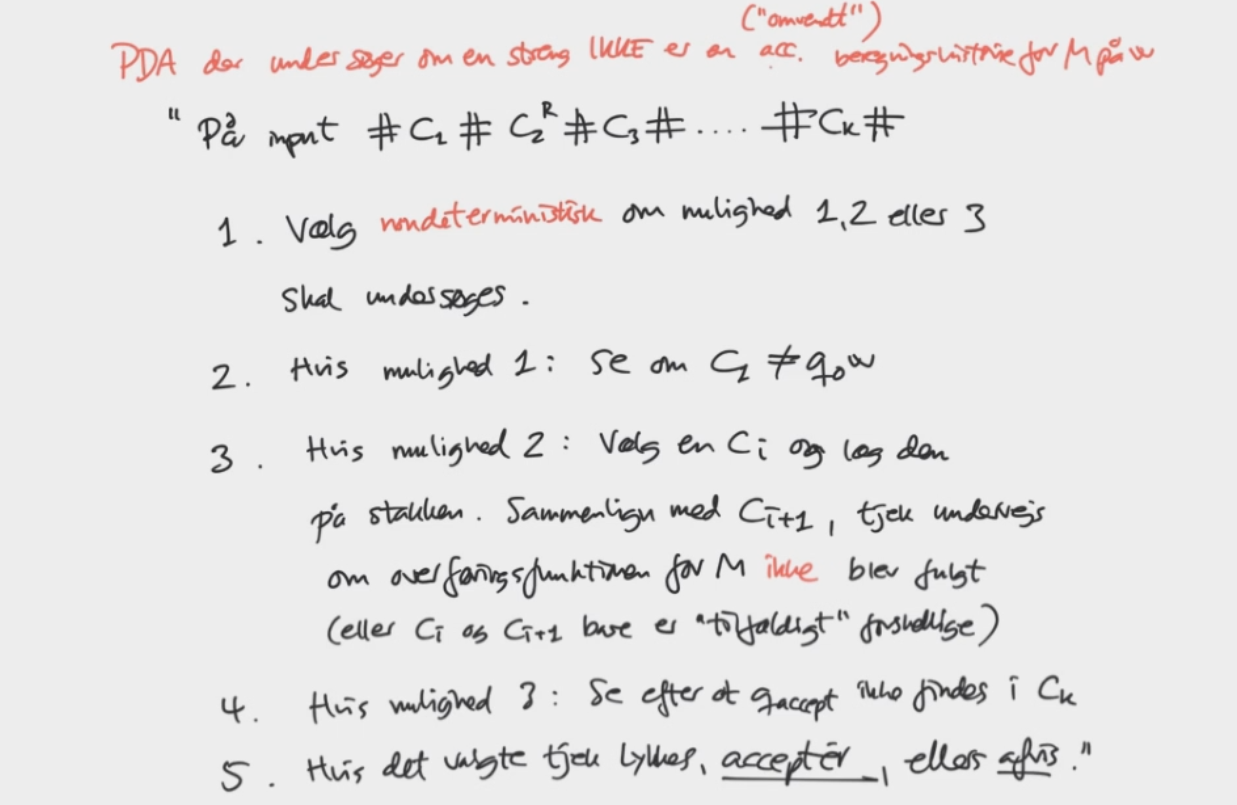 ("omvendt")
PDA der undersøger om en streng IKKE er en acc. beregningshistorie for M på w
"På input #C₁#C₂ᴿ#C₃#....#Cₖ#
1. Vælg nondeterministisk om mulighed 1,2 eller 3
skal undersøges.
2. Hvis mulighed 1: Se om C₁ ≠ q₀w
3. Hvis mulighed 2: Vælg en Cᵢ og læg den
på stakken. Sammenlign med Cᵢ₊₁, tjek undervejs
om overføringsfunktionen for M ikke blev fulgt
(eller Cᵢ og Cᵢ₊₁ bare er "tilfældigt" forskellige)
4. Hvis mulighed 3: Se efter at q_accept ikke findes i Cₖ
5. Hvis det valgte tjek lykkes, acceptér, ellers afvis."